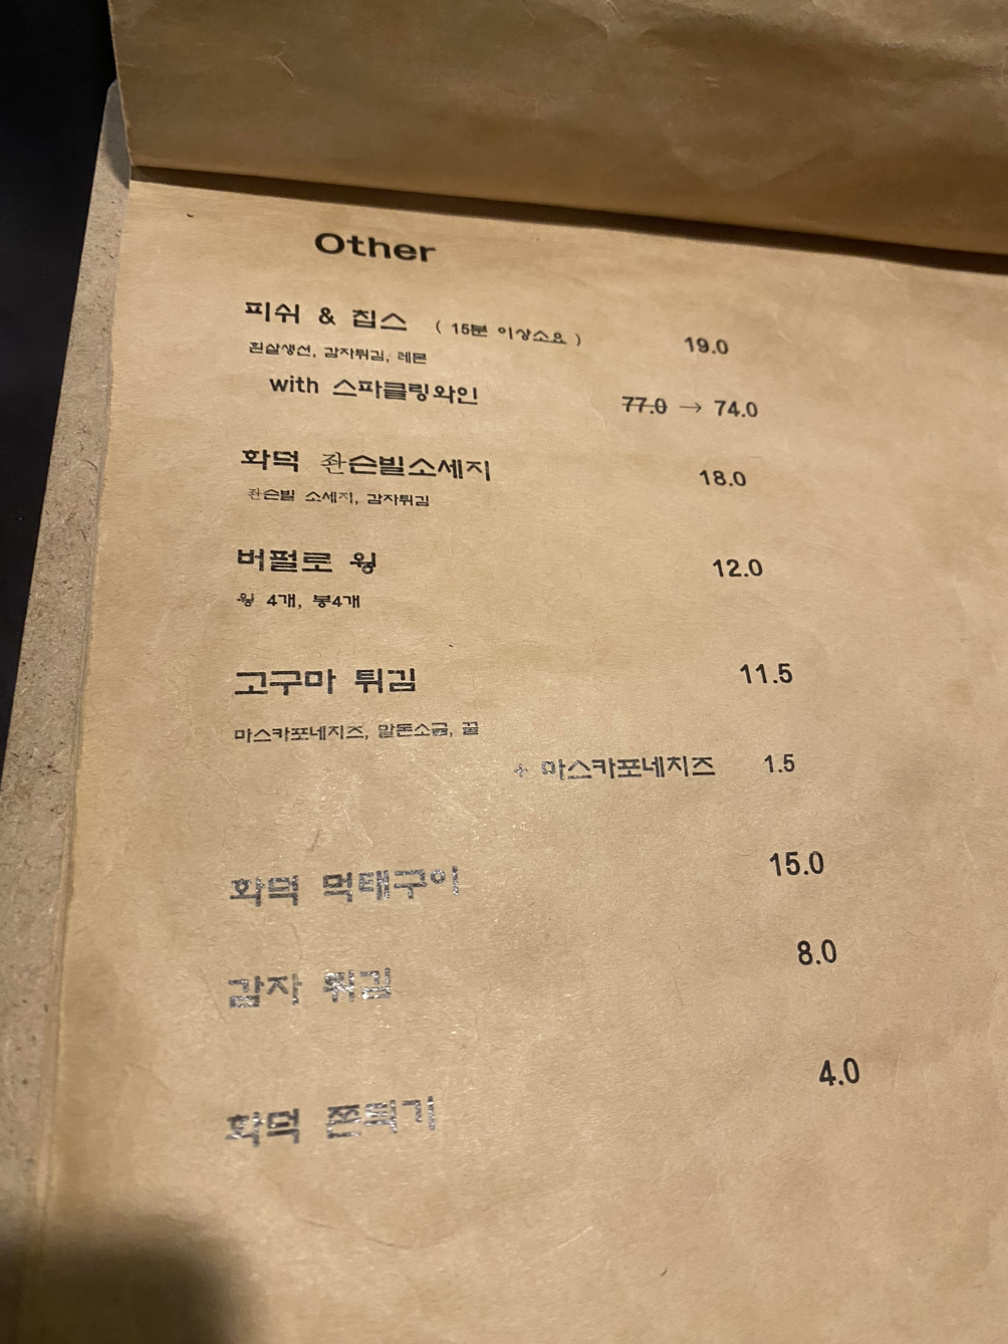 Other
피쉬 & 칩스 ( 15분 이상소요 ) 19.0
흰살생선, 감자튀김, 레몬
with 스파클링와인 77.0 → 74.0
화덕 좐슨빌소세지 18.0
좐슨빌 소세지, 감자튀김
버펄로 윙 12.0
윙 4개, 봉4개
고구마 튀김 11.5
마스카포네치즈, 말돈소금, 꿀
+ 마스카포네치즈 1.5
화덕 먹태구이 15.0
감자 튀김 8.0
화덕 쫀득기 4.0